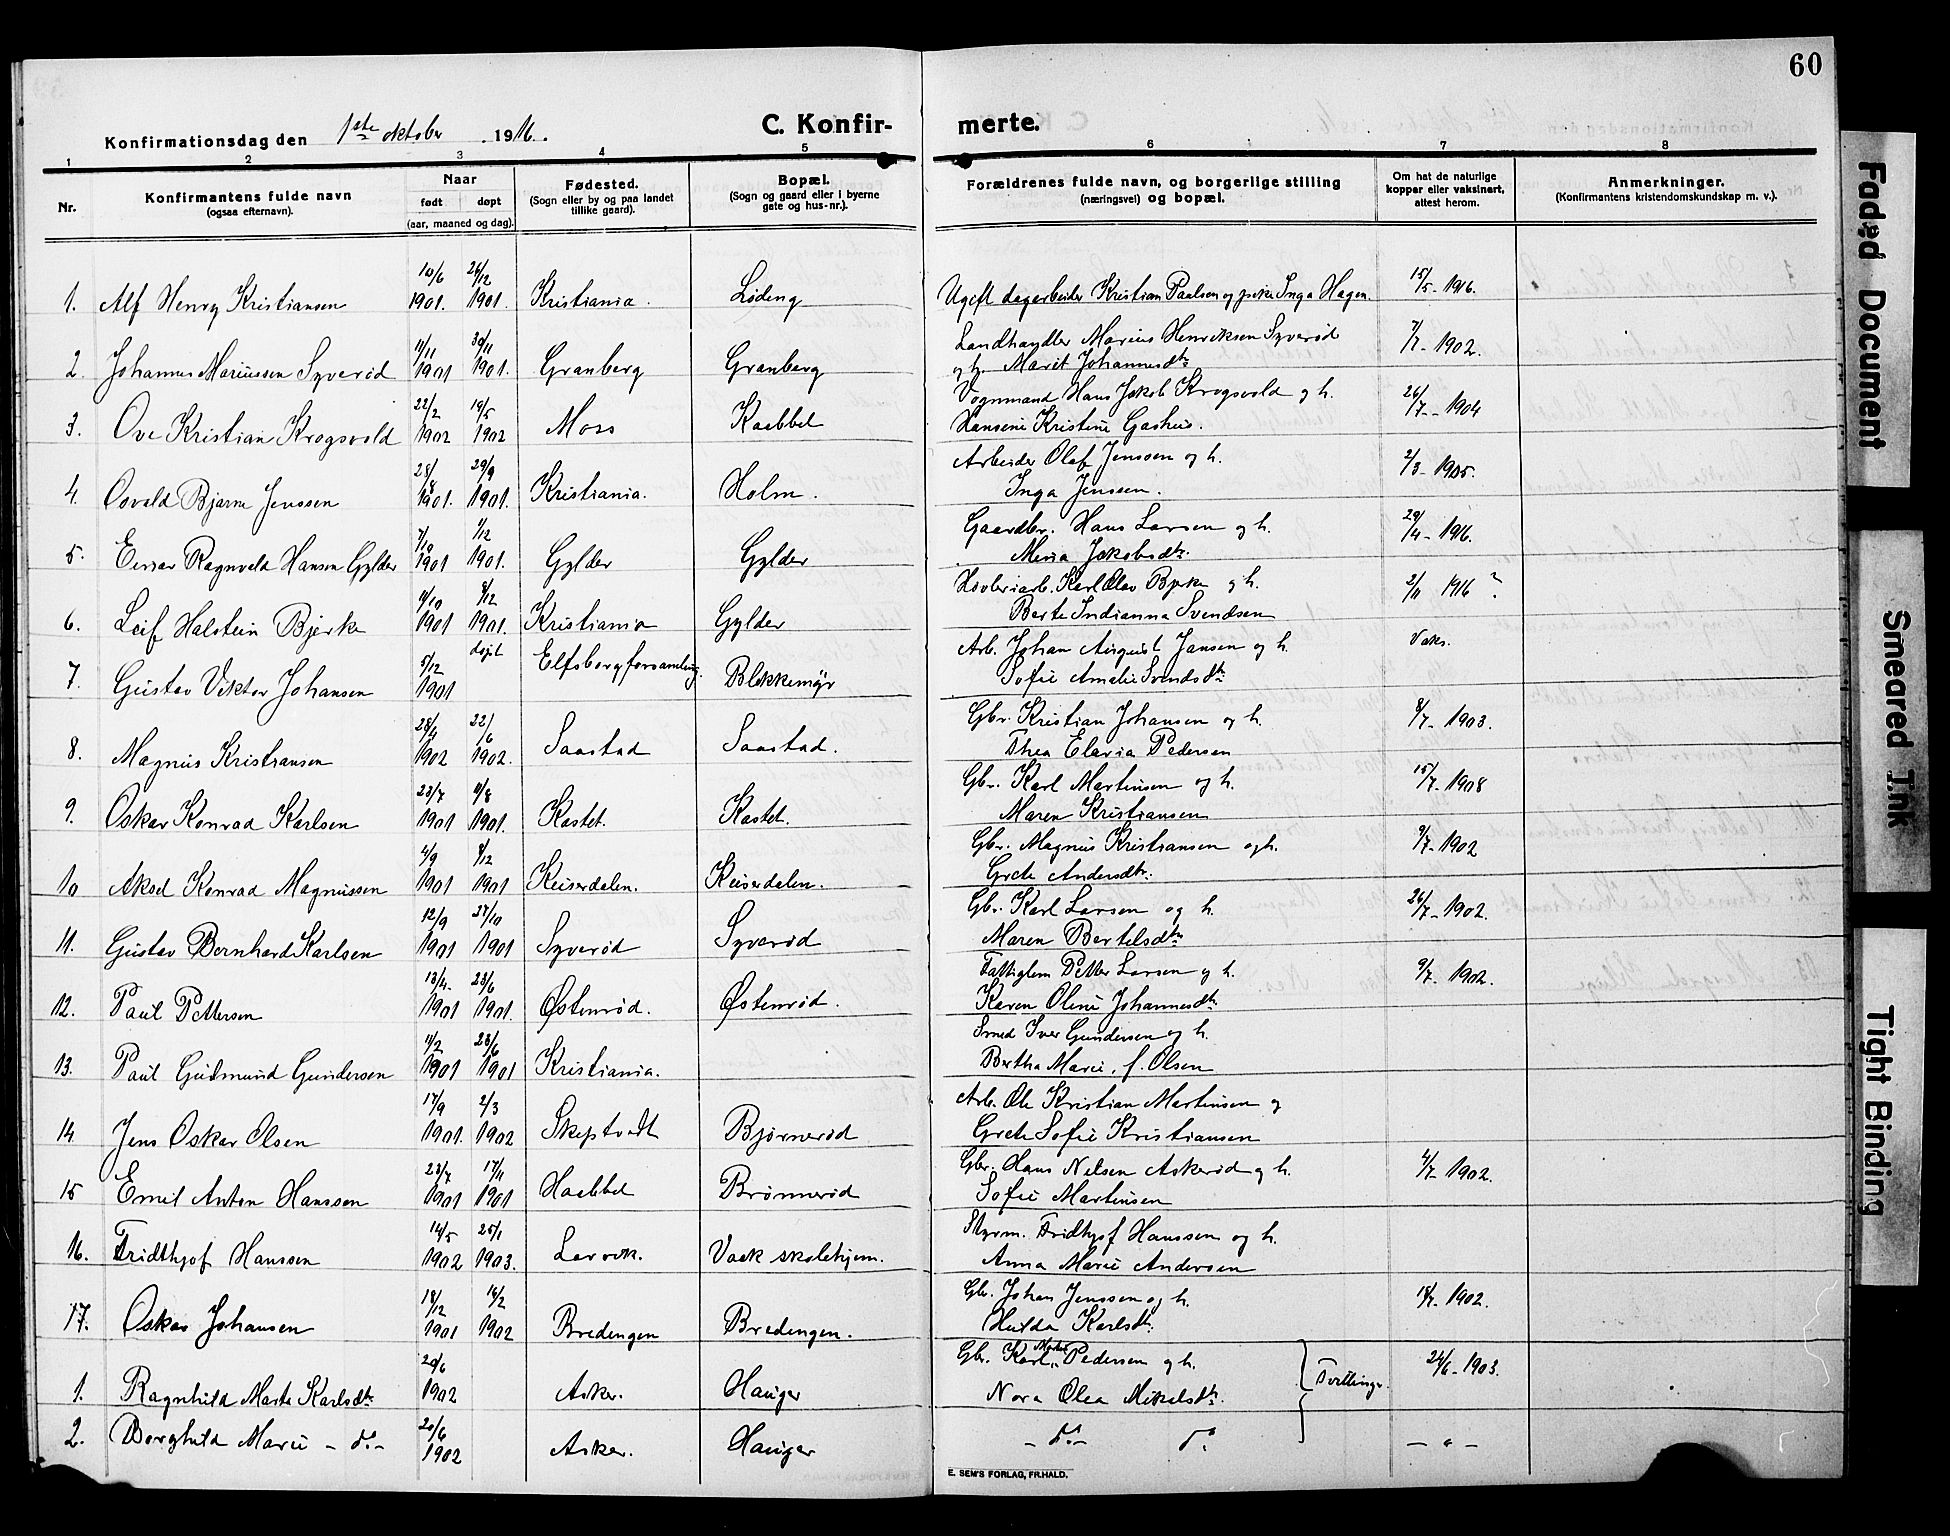 60
Konfirmationsdag den 1ste oktober 1916.
C. Konfirmerte.
1 2 3 4 5 6 7 8
Nr.
Konfirmantens fulde navn
(ogsaa efternavn).
Naar
født døpt
(aar, maaned og dag).
Fødested.
(Sogn eller by og paa landet
tillike gaard).
Bopæl.
(Sogn og gaard eller i byerne
gate og hus-nr.).
Forældrenes fulde navn, og borgerlige stilling
(næringsvei) og bopæl.
Om hat de naturlige
kopper eller vaksinert,
attest herom.
Anmerkninger.
(Konfirmantens kristendomskundskap m. v.).
1. Alf Henry Kristiansen 10/6 1901. 26/12 1901. Kristiania. Løding Ugift dagarbeider Kristian Paulsen og pike Inga Hagen. 15/5 - 1916.
2. Johannes Mariussen Syverød 11/11 1901 30/11 1901. Granberg Granberg Landhandler Marius Henriksen Syverød
og h. Marit Johannesdtr 7/7 - 1902.
3. Ove Kristian Krogsvold 22/2 1902 19/5 1902 Moss Kabbel Vognmand Hans Jakob Krogsvold og h.
Hansine Kristine Gashus. 26/7 - 1904
4. Osvald Bjarne Jenssen 28/8 1901. 29/9 1901. Kristiania. Holm. Arbeider Olaf Jenssen og h.
Inga Jenssen. 2/3 - 1905.
5. Einar Ragnvald Hansen Gylder 7/10 1901 1/12 1901. Gylder Gylder Gaardbr. Hans Larsen og h.
Mina Jakobsdtr. 29/4 - 1916.
6. Leif Halstein Bjerke 11/10 1901 8/12 1901. Kristiania Gylder Høvleriarb. Karl Olav Bjerke og h.
Berte Indianna Svendsen 2/11 1916 ?
7. Gustav Viktor Johansen 5/12 1901 døpt Elfsborgforsamling. Blekkemyr Arb. Johan August Jansen og h.
Sofie Amalie Svendsdtr Vaks.
8. Magnus Kristiansen 28/4 1902 22/6 1902. Saastad Saastad. Gbr. Kristian Johansen og h.
Thea Elavia Pedersen 8/7 - 1903.
9. Oskar Konrad Karlsen 23/7 1901 11/8 1901. Kastet. Kastet. Gbr. Karl Martinsen og h.
Maren Kristiansen 15/7 - 1908
10 Aksel Konrad Magnussen 4/9 1901 8/12 1901 Keiserdalen. Keiserdalen. Gbr. Magnus Kristiansen og h.
Grete Andersdtr. 9/7 - 1902
11. Gustav Bernhard Karlsen 12/9 1901 27/10 1901 Syverød Syverød Gbr. Karl Larsen og h.
Maren Bertelsdtr 26/7 - 1902.
12. Paul Pettersen 13/4 1901 23/6 1901. Østenrød. Østenrød. Fattiglem Petter Larsen og h.
Karen Oline Johannesdtr. 9/7 - 1902.
13. Paul Gudmund Gundersen 11/2 1901 23/6 1901 Kristiania. Smed Iver Gundersen og h.
Bertha Marie, f. Olsen
14 Jens Oskar Olsen 17/9 1901. 2/3 1902 Skeptvedt Bjørnerød Arb. Ole Kristian Martinsen og
Grete Sofie Kristiansen
15 Emil Anton Hanssen 23/7 1901 17/11 1901 Haabbel Brønnerød Gbr. Hans Nilsen Askerød og h.
Sofie Martinsen 4/7 - 1902.
16. Fridthjof Hanssen 14/5 1902 25/1 1903. Larvik. Vaak skolehjem. Styrm. Fridthjof Hanssen og h.
Anna Marie Andersen
17. Oskar Johansen 18/12 1901 16/2 1902 Bredengen Bredengen. Gbr. Johan Jenssen og h.
Hulda Karlsdtr. 1902.
1. Ragnhild Marta Karlsdtr 20/6 1902 Asker. Hauger Gbr. Karl Pedersen og h.
Nora Olea Mikelsdtr. Tvillinger 24/6 - 1903.
2. Borghild Marie - do - 20/6 1902 Asker. Hauger - do - do - " -
E. SEM'S FORLAG, FR.HALD.
Faded Document
Smeared Ink
Tight Binding